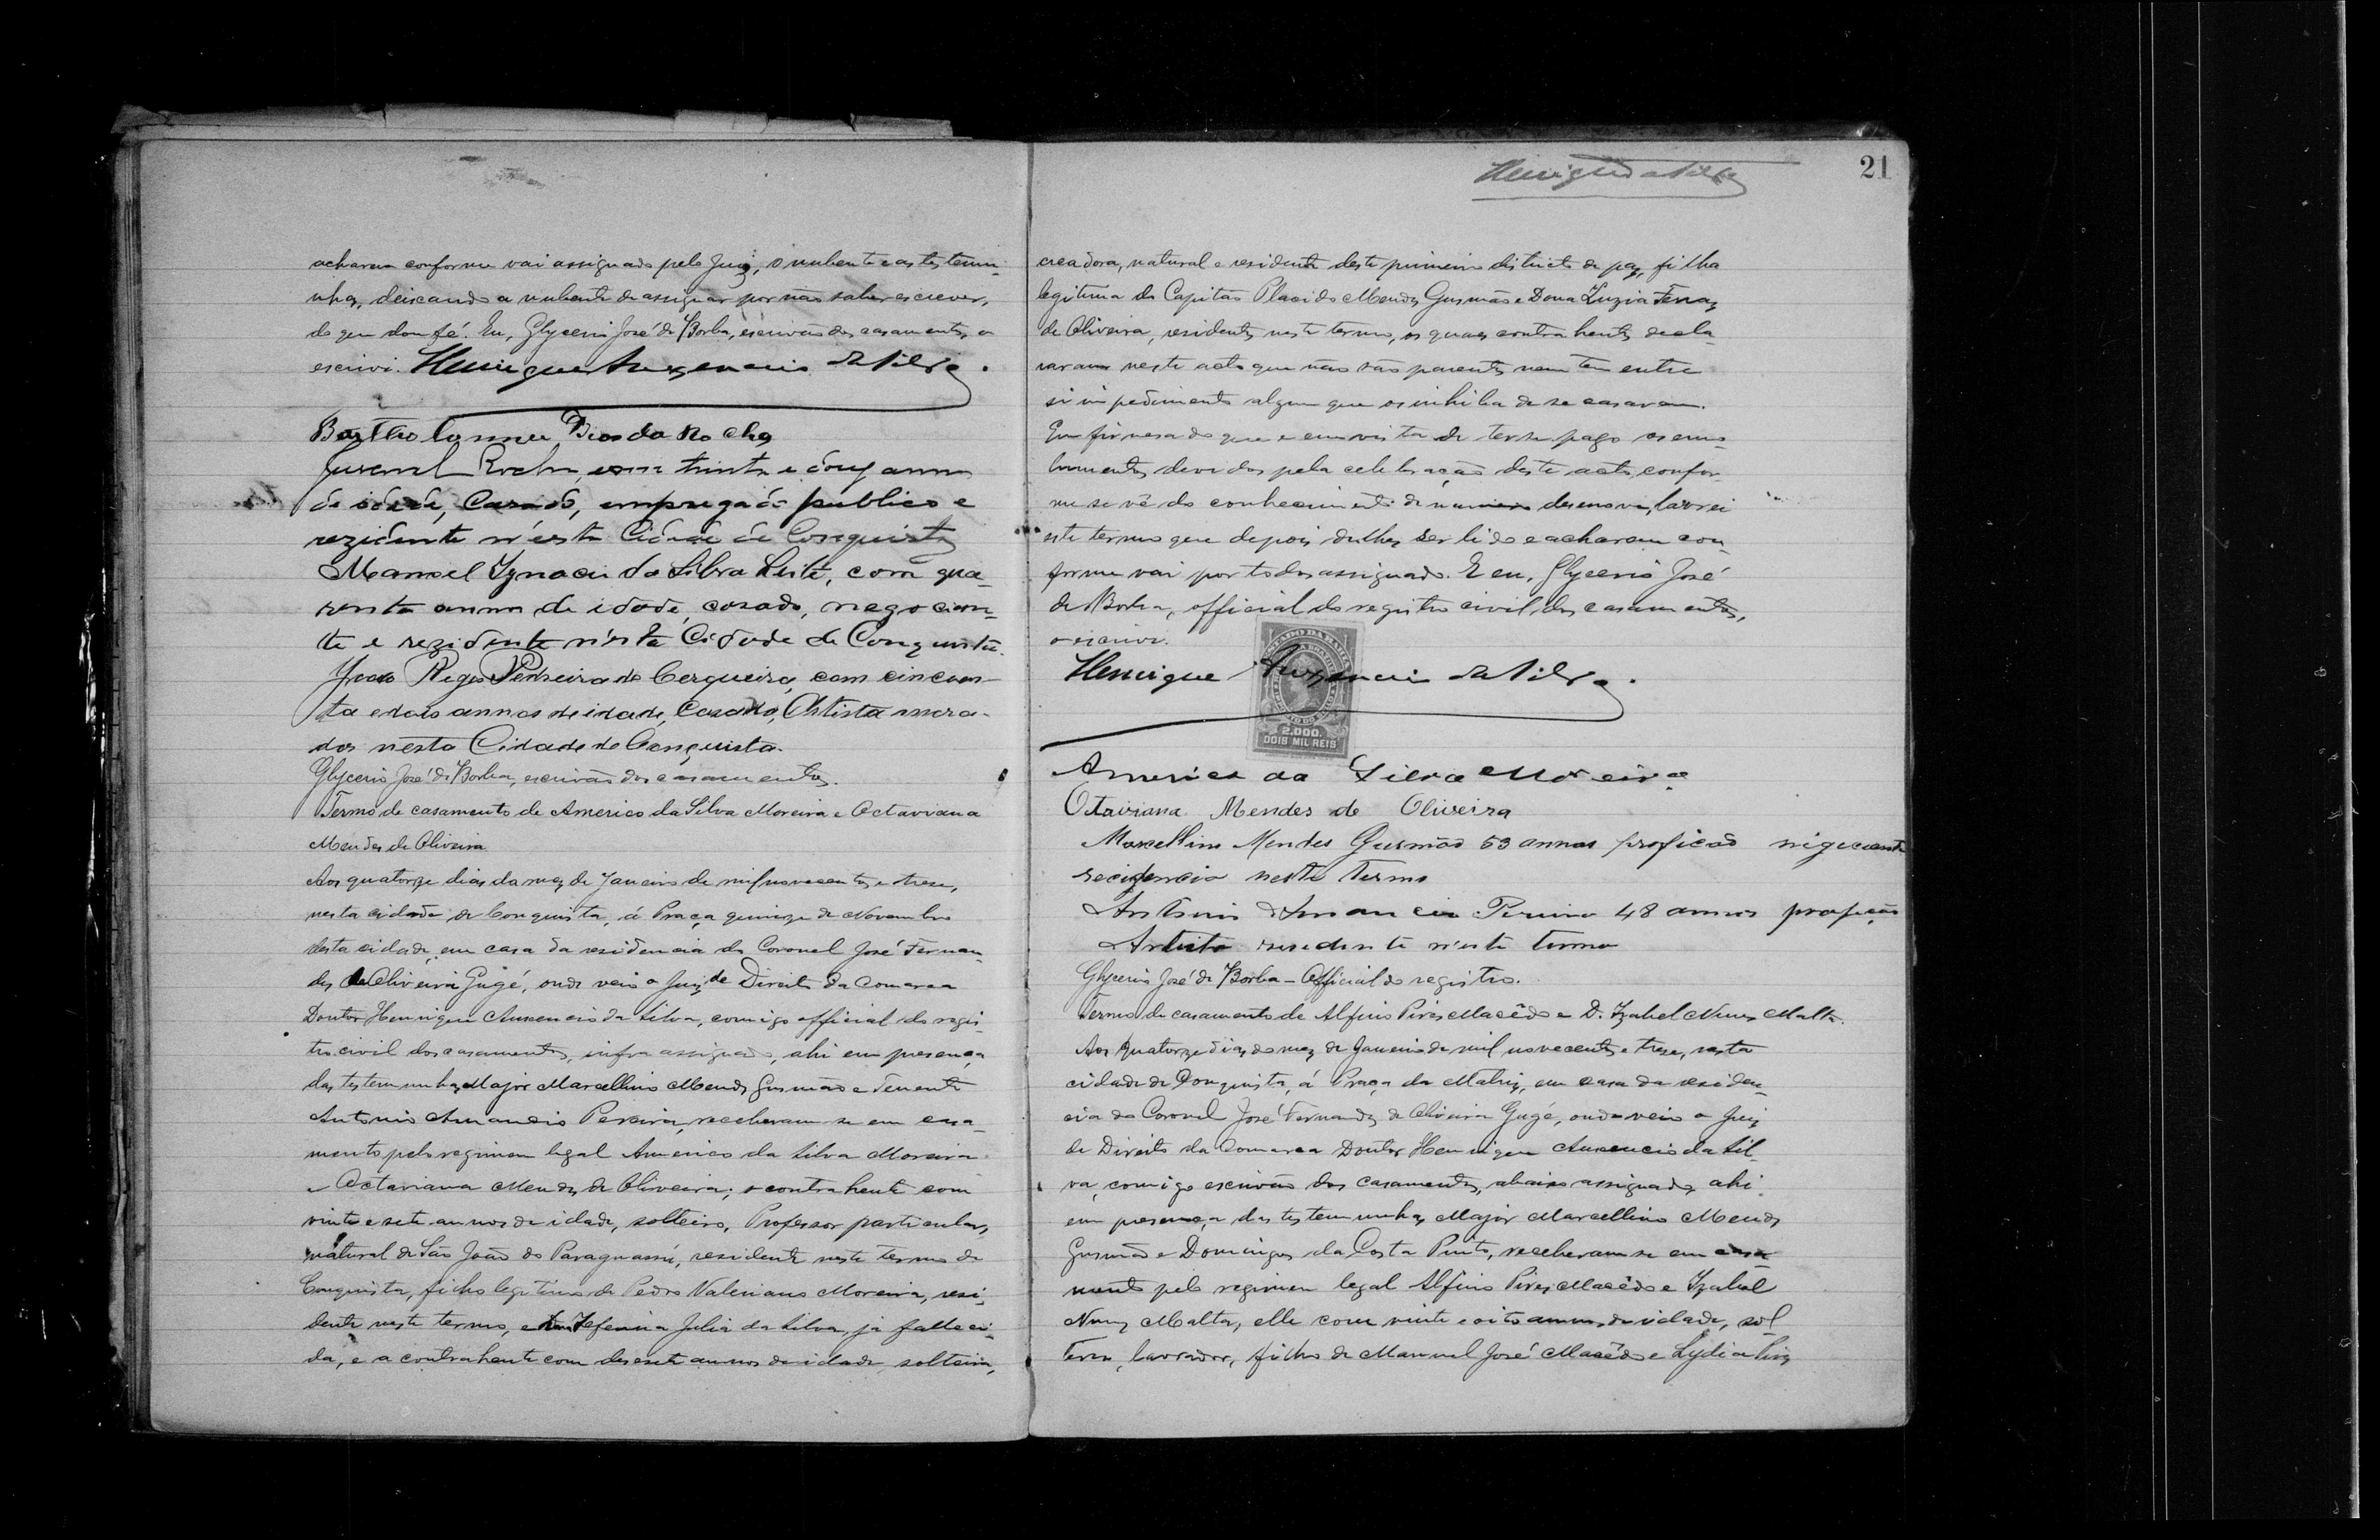 acharem conforme vai assignado pelo Juiz, o nubente e as testemu-
nhas, deixando a nubente de assignar por não saber escrever,
do que dou fé. Eu, Glycerio José de Borba, escrivão dos casamentos, o
escrivi. Henrique Auxencio da Silva.
Bartholomeu Dias da Rocha
Juvenal Rocha, com trinta e dous annos
de idade, Casado, empregado publico e
rezidente n'ésta Cidade de Conquista
Manoel Ignacio da Silva Leite, com qua-
renta annos de idade, casado, negocian-
te e rezidente n'esta Cidade de Conquista.
João Regis Pedreira de Cerqueira, com cincoen-
ta e dois annos de idade, Casado, Artista mora-
dor nesta Cidade de Conquista.
Glycerio José de Borba, escrivão dos casamentos.
Termo de casamento de Americo da Silva Moreira e Octaviana
Mendes de Oliveira
Aos quatorze dias do mez de Janeiro de mil novecentos e trese,
nesta cidade de Conquista, á Praça quinze de Novembro
desta cidade, em casa da residencia do Coronel José Fernan-
des de Oliveira Gugé, onde veio o Juiz de Direito da Comarca
Doutor Henrique Auxencio da Silva, comigo official do regis-
tro civil dos casamentos, infra assignado, ahi em presença
das testemunhas Major Marcellino Mendes Gusmão e Tenente
Antonio Amancio Pereira, receberam-se em casa-
mento pelo regimen legal Americo da Silva Moreira
e Octaviana Mendes de Oliveira; o contrahente com
vinte e sete annos de idade, solteiro, Professor particular,
natural de São João do Paraguassú, residente neste termo de
Conquista, filho legitimo de Pedro Valeriano Moreira, resi-
dente neste termo, e Zeferina Julia da Silva, já falleci-
da, e a contrahente com desesete annos de idade, solteira,
Henrique da Silva
21
creadora, natural e residente deste primeiro districto de paz, filha
legitima do Capitão Placido Mendes Gusmão e Dona Luzia Ferraz
de Oliveira, residentes neste termo, os quaes contrahentes decla-
raram neste acto que não são parentes nem tem entre
si impedimento algum que os inhiba de se casarem.
Em firmesa do que e em vista de ter-se pago os emo-
lumentos devidos pela celebração deste acto, confor-
me se vê do conhecimento de numero desenove, lavrei
este termo que depois de lhes ser lido e acharem con-
forme vai por todos assignado. E eu, Glycerio José
de Borba, official do registro civil dos casamentos,
o escrivi.
ESTADO DA BAHIA
2.000.
DOIS MIL REIS
Henrique Auxencio da Silva.
Americo da Silva Moreira
Otaviana Mendes de Oliveira
Marcellino Mendes Gusmão 53 annos proficão nigociante
recidencia neste Termo
Antonio Amancio Pereira 48 annos profição
Artista residente n'este termo
Glycerio José de Borba - Official do registro.
Termo de casamento de Alfino Pires Macêdo e D. Izabel Nunes Malta.
Aos quatorze dias do mez de Janeiro de mil novecentos e trese, nesta
cidade de Conquista, á Praça da Matriz, em casa da residen-
cia do Coronel José Fernandes de Oliveira Gugé, onde veio o Juiz
de Direito da Comarca Doutor Henrique Auxencio da Sil-
va, comigo escrivão dos casamentos, abaixo assignado, ahi
em presença das testemunhas Major Marcellino Mendes
Gusmão e Domingos da Costa Pinto, receberam-se em casa-
mento pelo regimen legal Alfino Pires Macêdo e Izabel
Nunes Malta, elle com vinte e oito annos de idade, sol-
teiro, lavrador, filho de Manuel José Macêdo e Lydia Pires